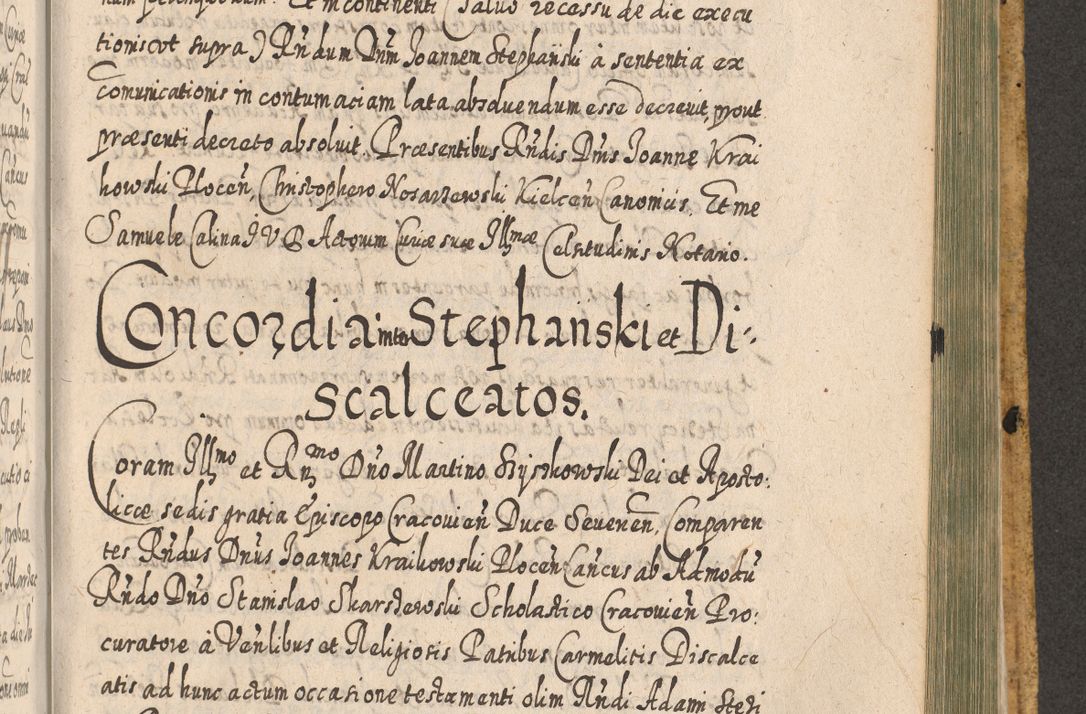 Et in continenti (salvo recessu de die execu
tionis ut supra) Rndum Dnm Joannem Stephański à sententia ex
comunicationis in contumaciam lata absolvendum esse decrevit, prout
præsenti decreto absolvit, Præsentibus Rndis Dnis Joanne Krai
kowski Plocen, Christophero Nosarzewski Kielcen Canonicis, Et me
Samuele Calina JVD Actorum Curiæ suæ Illmæ Celsitudinis Notario.
Concordia inter Stephanski et Di-
scalceatos.
Coram Illmo et Rnmo Dno Martino Szyszkowski Dei et Aposto:
licæ sedis gratia Episcopo Cracovien Duce Severien, Comparen
tes Rndus Dnus Joannes Kraikowski Plocen Cancus ab Admodu
Rndo Dno Stanislao Skarszewski Scholastico Cracovien Pro:
curatore à Venlibus et Religiosis Patribus Carmelitis Discalce
atis ad hunc actum occasione testamenti olim Rndi Adami Steri